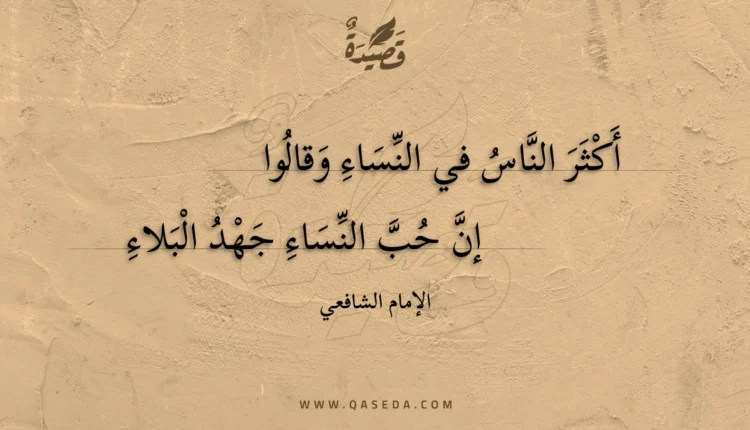 قَصِيْدَةٌ
أَكْثَرَ النَّاسُ في النِّسَاءِ وَقالُوا
إنَّ حُبَّ النِّسَاءِ جَهْدُ الْبَلاءِ
الإمام الشافعي
WWW.QASEDA.COM